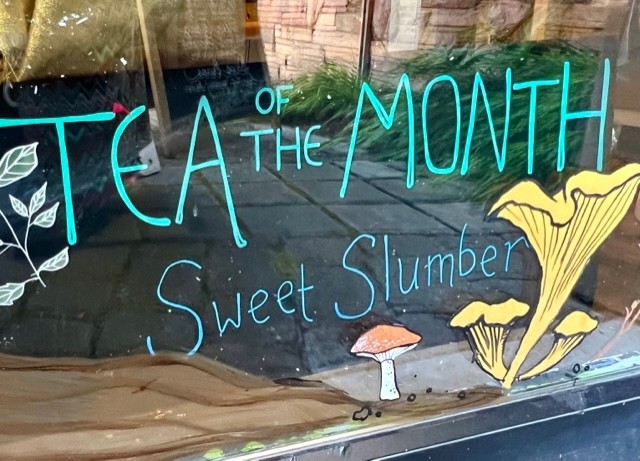 TEA OF THE MONTH
Sweet Slumber